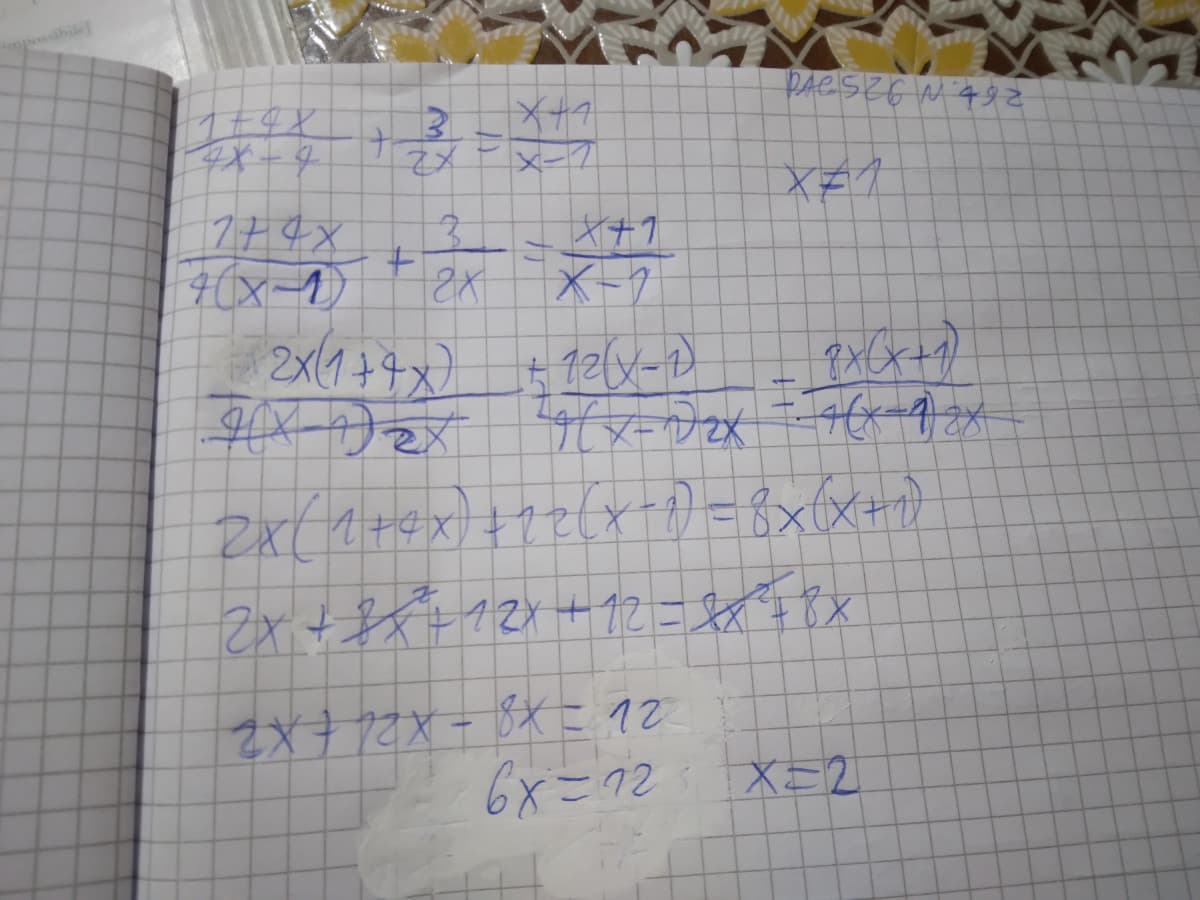 PAG 526 N. 492
(1+4x)/(4x-4) + 3/(2x) = (x+1)/(x-1)
x≠1
(1+4x)/(4(x-1)) + 3/(2x) = (x+1)/(x-1)
2x(1+4x)/(4(x-1)2x) + 12(x-1)/(4(x-1)2x) = 8x(x+1)/(4(x-1)2x)
2x(1+4x)+12(x-1)=8x(x+1)
2x+8x²+12x+12=8x²+8x
2x+12x-8x=12
6x=12 x=2